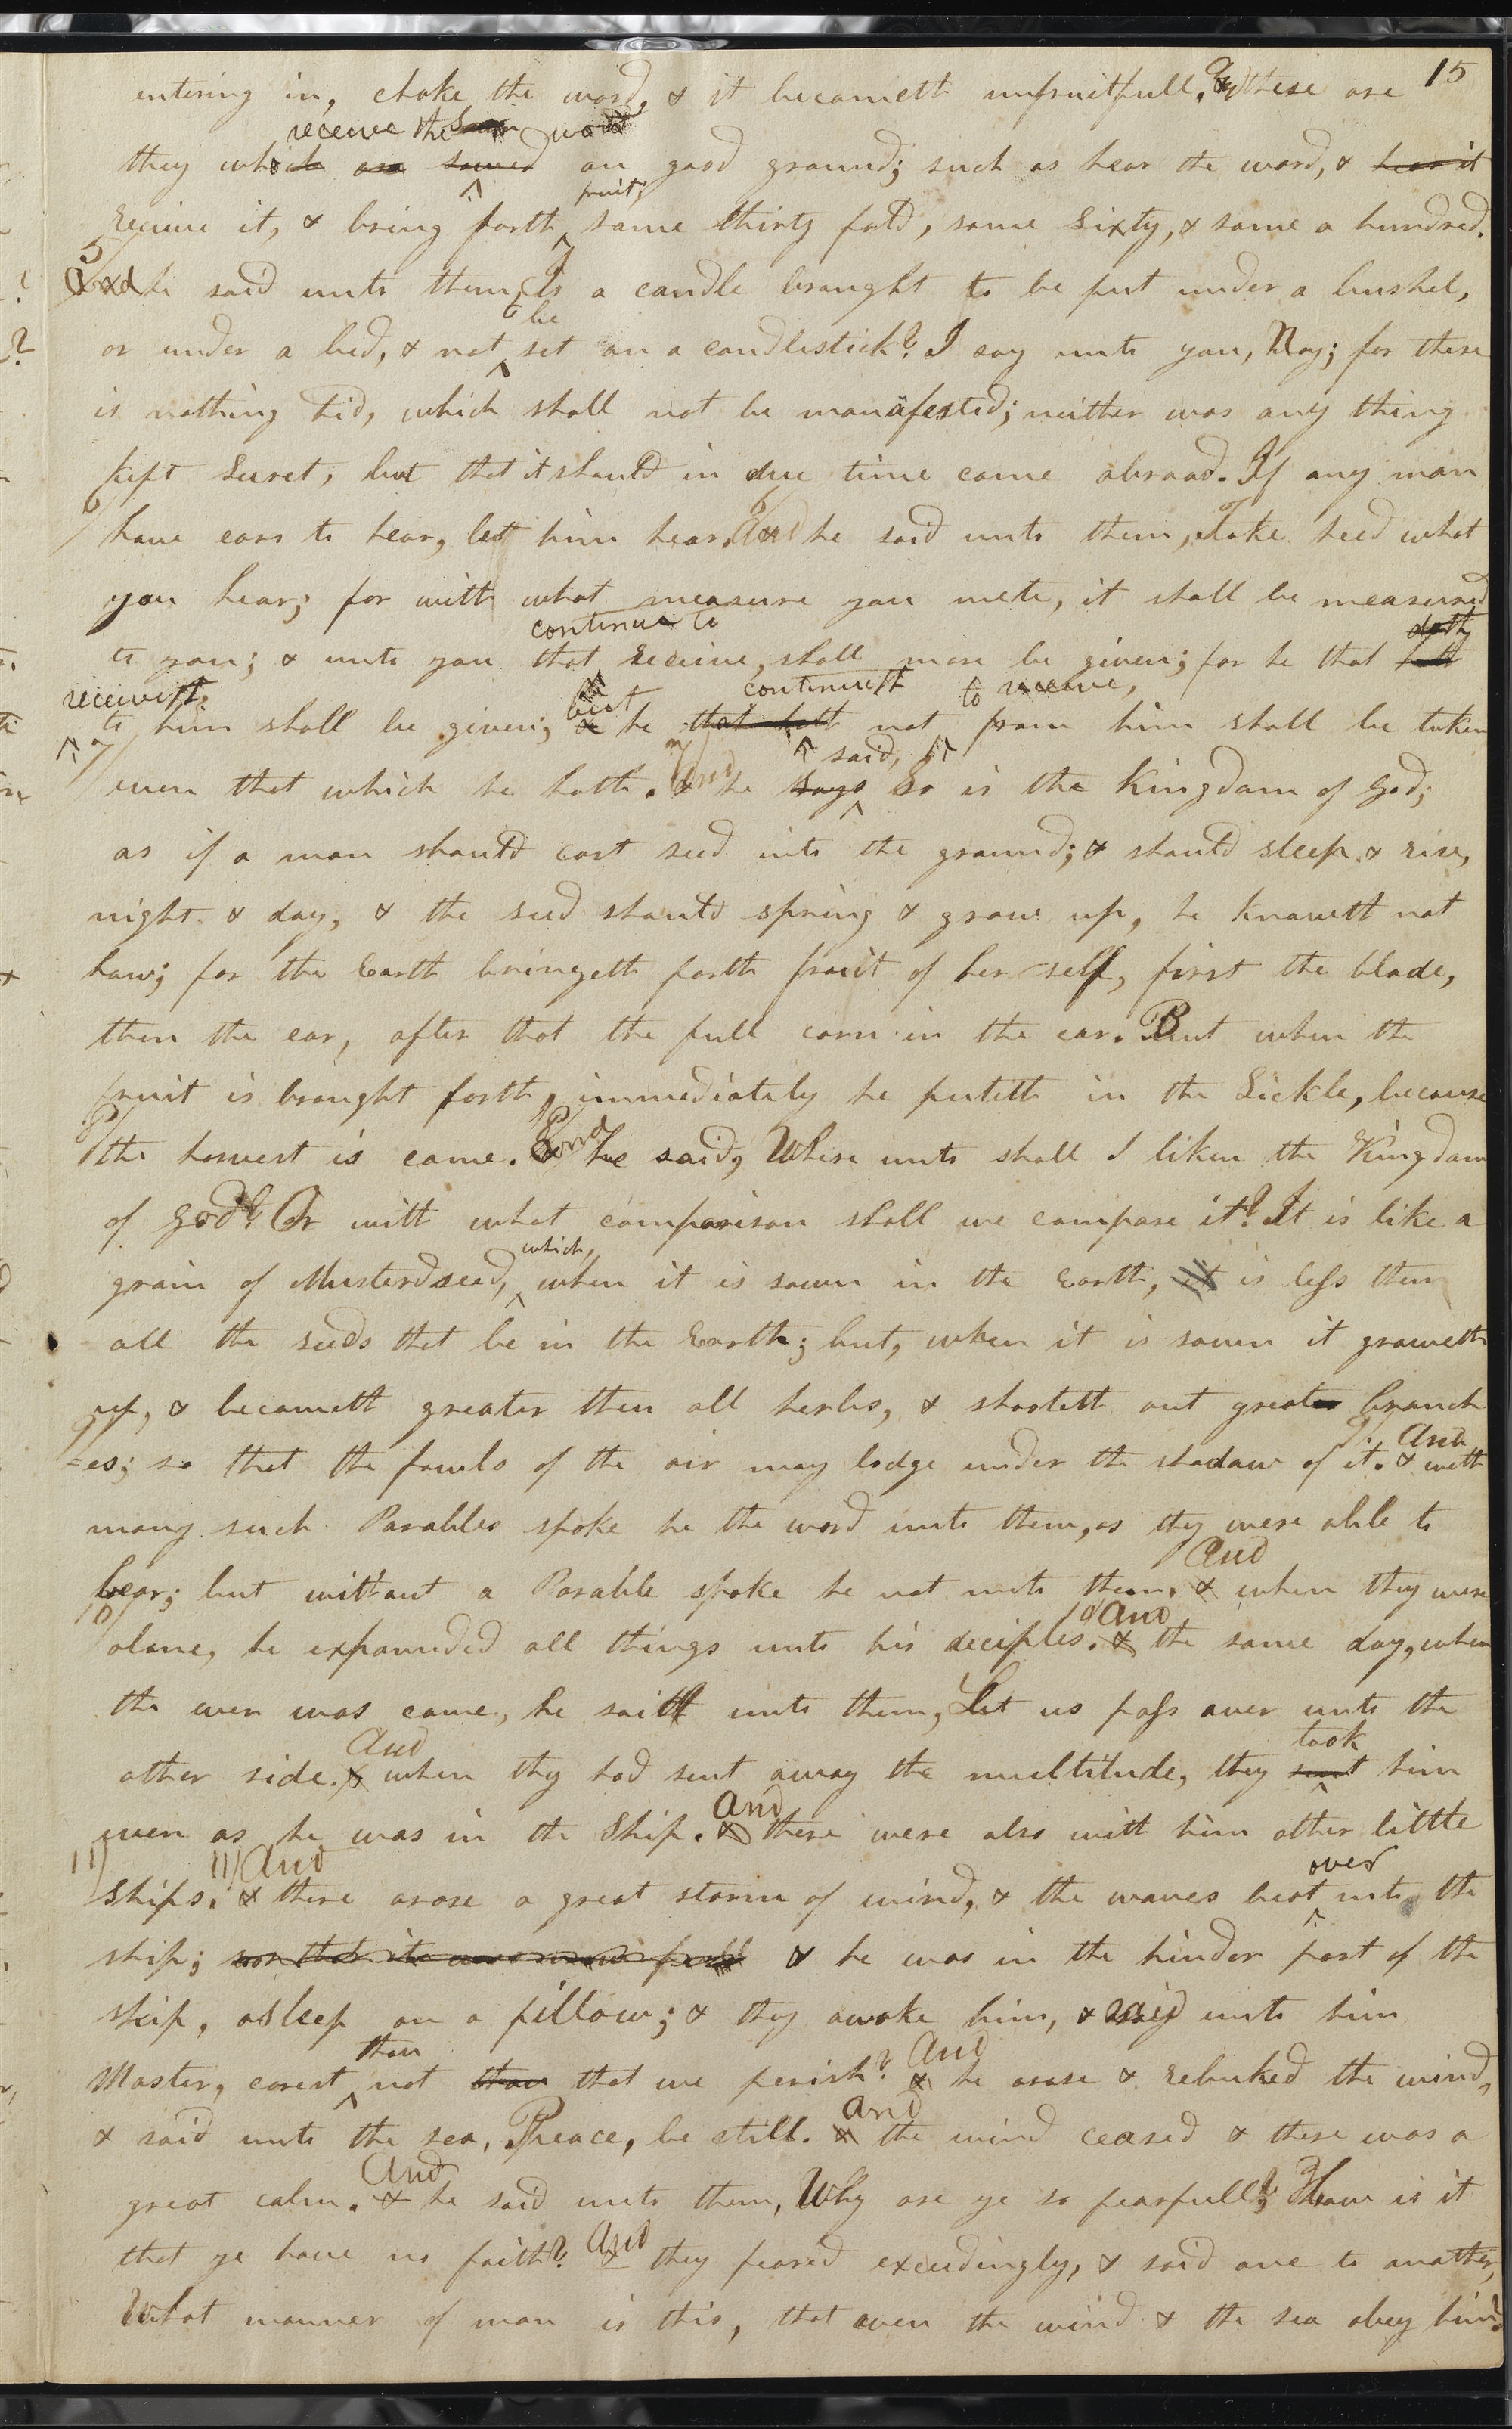 15
entering in, choke the word, & it becometh unfruitfull. & these are
receive the word
they which are sowed on good ground; such as hear the word, & hear it
fruit;
receive it, & bring forth, some thirty fold, some sixty, & some a hundred.
5
And he said unto them, Is a candle brought to be put under a bushel,
to be
or under a bed, & not set on a candlestick? I say unto you, Nay; for there
is nothing hid, which shall not be manafested; neither was any thing
kept secret, but that it should in due time come abroad. If any man
6
have ears to hear, let him hear. And he said unto them, Take heed what
you hear; for with what measure you mete, it shall be measured
continue to
to you; & unto you that receive, shall more be given; for he that hath
receiveth, but continueth to receive,
to him shall be given; & he that hath not from him shall be taken
7 said,
even that which he hath. And he says So is the Kingdom of God;
as if a man should cast seed into the ground; & should sleep & rise,
night & day, & the seed should spring & grow up, he knoweth not
how; for the Earth bringeth forth fruit of her self, first the blade,
then the ear, after that the full corn in the ear. But when the
fruit is brought forth, immediately he puteth in the Sickle, because
8
the harvest is come. And he said, Where unto shall I liken the Kingdom
of God? Or with what comparison shall we compare it? It is like a
which,
grain of Musterd seed, when it is sown in the Earth, it is less then
all the seeds that be in the Earth; but, when it is sown it groweth
up, & becometh greater then all herbs, & shooteth out greater branch
9 And
=es; so that the fowls of the air may lodge under the shadow of it. & with
many such Parables spoke he the word unto them, as they were able to
And
bear; but without a Parable spoke he not unto them. & when they were
10 And
alone, he expounded all things unto his deciples. & the same day, when
the even was come, he saith unto them, Let us pass over unto the
And took
other side. & when they had sent away the multitude, they sent him
And
even as he was in the Ship. & there were also with him other little
11 11 And over
ships. & there arose a great storm of wind, & the waves beat into the
ship; & he was in the hinder part of the
ship, asleep on a pillow; & they awoke him, & said unto him
thou And
Master, carest not thou that we perish? & he arose & rebuked the wind,
And
& said unto the sea, Peace, be still. & the wind ceased & there was a
And
great calm. & he said unto them, Why are ye so fearfull? How is it
And
that ye have no faith? & they feared exceedingly, & said one to another,
What manner of man is this, that even the wind & the sea obey him?